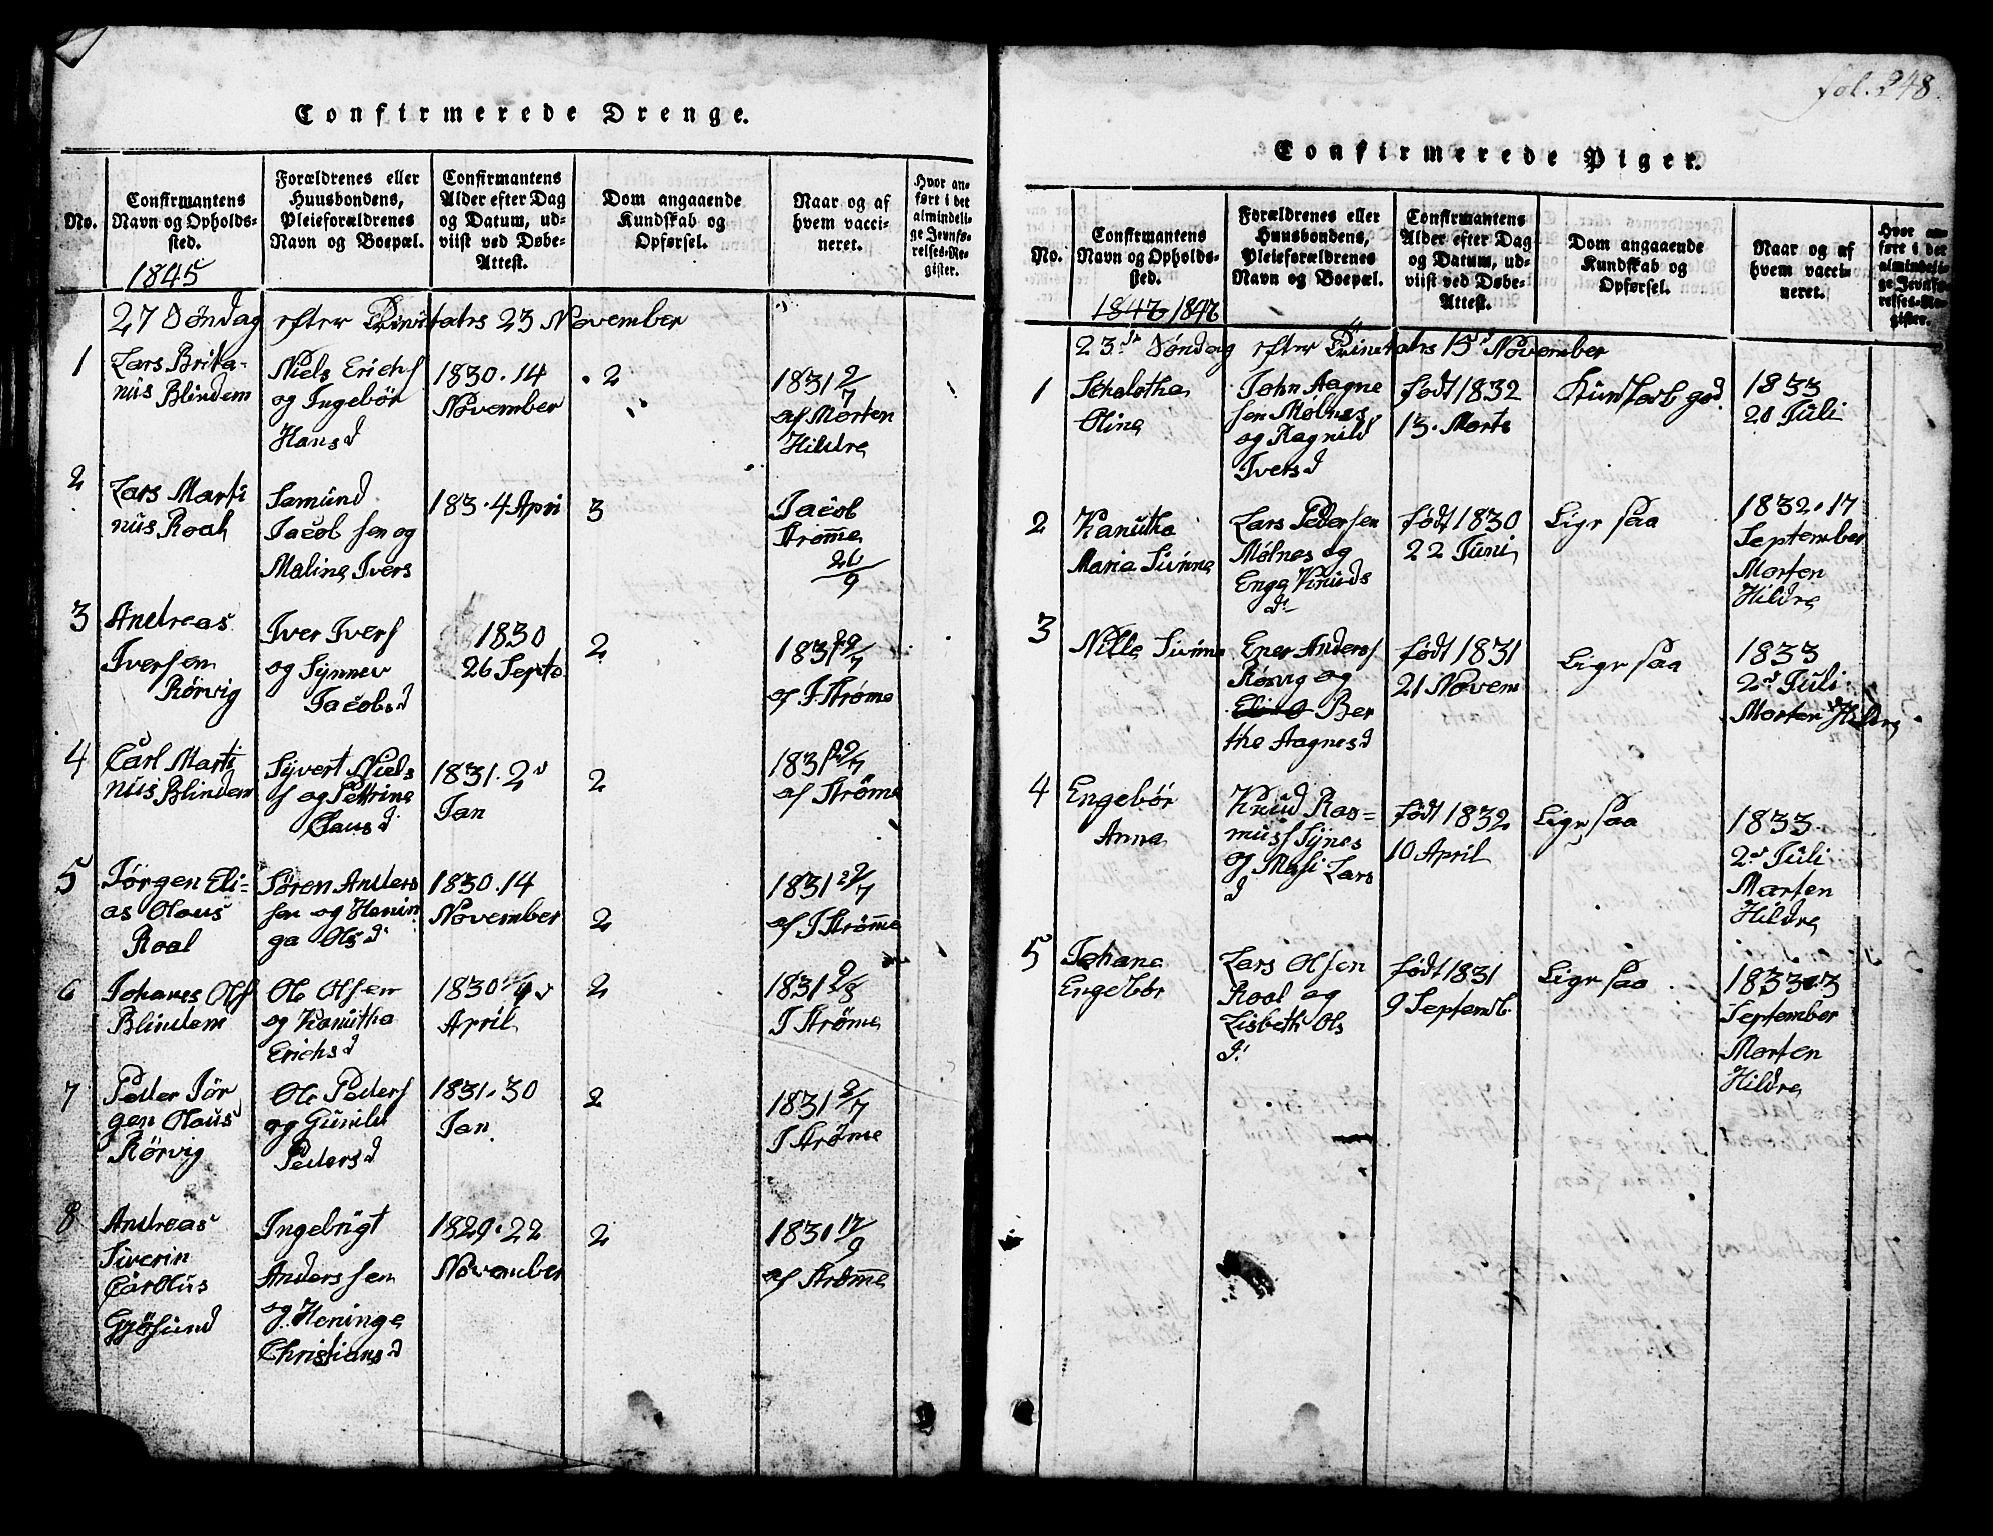 Confirmerede Drenge.
No.
Confirmantens
Navn og Opholds-
sted.
1845
Forældrenes eller
Huusbondens,
Pleieforældrenes
Navn og Boepæl.
Confirmantens
Alder efter Dag
og Datum, ud-
viist ved Døbe-
Attest.
Dom angaaende
Kundskab og
Opførsel.
Naar og af
hvem vacci-
neret.
Hvor an-
ført i det
almindeli-
ge Jevnfø-
relses-Re-
gister.
27 Söndag efter Trinitatis 23 November
1
Lars Brita-
nius Blindem
Niels Erichs
og Ingebör
Hansd
1830. 14
November
2
1831 2/7
af Morten
Hildre
2
Lars Marti
nus Roal
Samund
Jacob sen og
Malina Ivers
183. 4 Apri
3
Jacob
Strømme
26/9
3
Andreas
Iversen
Rörvig
Iver Ivers
og Synnev
Jacobsd
1830
26 Septe
2
1831 29/7
af J. Strøme
4
Carl Marti
nus Blindem
Syvert Niels
s og Pettrine
Clausd
1831. 2d
Jan
2
1831 29/7
af Strøme
5
Jörgen Eli-
as Olaus
Roal
Sören Anders
sen og Henin
ga Olsd
1830. 14
November
2
1831 27/7
af J Strømme
6
Johanes Ols
Blindem
Ole Olsen
og Kanutha
Erichsd
1830
April
2
1831 9/8
J Strøme
7
Peder Jör
gen Olaus
Rörvig
Ole Peders
og Gunild
Pedersd
1831. 30
Jan
2
1831 2/7
J Strøme
8
Andreas
Siverin
Carolus
Gjösund
Ingebrigt
Anderssen
og Heninge
Christiansd
1829. 22
November
2
1831 17/9
af Strømme
fol. 248
Confirmerede Piger.
No.
Confirmantens
Navn og Opholds-
sted.
1847 1846
Forældrenes eller
Huusbondens,
Pleieforældrenes
Navn og Boepæl.
Confirmantens
Alder efter Dag
og Datum, ud-
viist ved Døbe-
Attest.
Dom angaaende
Kundskab og
Opførsel.
Naar og af
hvem vacci-
neret.
Hvor an-
ført i det
almindeli-
ge Jevnfø-
relses-Re-
gister.
23de Söndag efter Trinitatis 15d November
1
Schalotha
Olina
John Aagne
sen Mølnes
og Ragnild
Iversd
født 1832
13. Morts
Kundskab god
1833
20 Juli
2
Kanutha
Maria
Lars Pedersen
Mølnes og
Enga Knuds
d
født 1830
22 Juni
Lige saa
1832. 17
September
Morten
Hildre
3
Nille
Anders
Rösvig og
Ber
the Aagnesd
født 1831
21 Novem
Lige saa
1833
2d Juli
Morten Hildre
4
Engebör
Anna
Knud Ras-
muss Synes
og Masi Lars
d
født 1832
10 April
Lige saa
1833
2d Juli
Morten
Hildre
5
Johana
Engebör
Lars Olsen
Roal og
Lisbeth Ols
d
født 1831
9 Septemb.
Lige saa
1833 3
September
Morten
Hildre